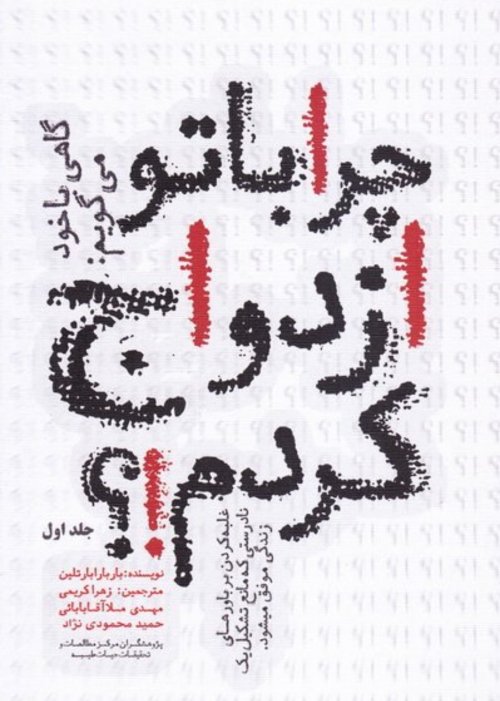 گاهی با خود
می گویم:
چرا با تو
ازدواج
کردم!؟
غلبه کردن بر باورهای
نادرستی که مانع تشکیل یک
زندگی موفق میشود.
جلد اول
نویسنده: باربارا بارتلین
مترجمین: زهرا کریمی
مهدی ملاآقابابائی
حمید محمودی نژاد
پژوهشگران مرکز مطالعات و
تحقیقات حیات طیبه